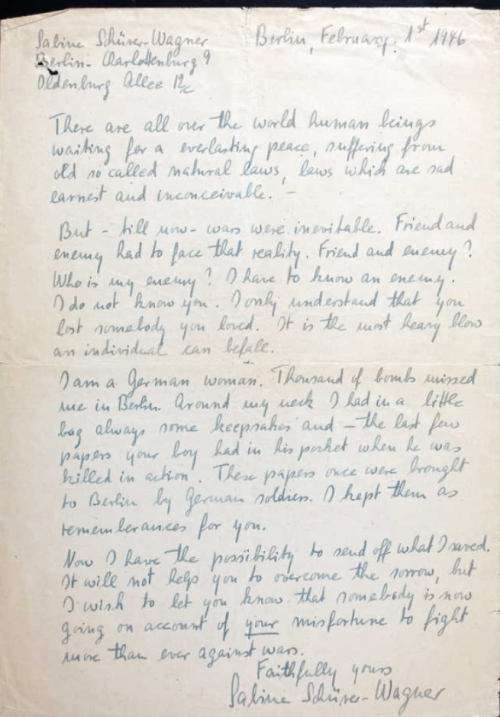 Sabine Schürer-Wagner
Berlin, February 1st 1946
Berlin-Charlottenburg 9
Oldenburg Allee
There are all over the world human beings
waiting for a everlasting peace, suffering from
old so called natural laws, laws which are sad
earnest and inconceivable. -
But - till now - wars were inevitable. Friend and
enemy had to face that reality. Friend and enemy?
Who is my enemy? I have to know an enemy.
I do not know you. I only understand that you
lost somebody you loved. It is the most heavy blow
an individual can befall.
I am a German woman. Thousand of bombs missed
me in Berlin. Around my neck I had in a little
bag always some keepsakes and - the last few
papers your boy had in his pocket when he was
killed in action. These papers once were brought
to Berlin by German soldiers. I kept them as
rememberances for you.
Now I have the possibility to send off what I saved.
It will not help you to overcome the sorrow, but
I wish to let you know that somebody is now
going on account of your misfortune to fight
more than ever against wars.
Faithfully yours
Sabine Schürer-Wagner